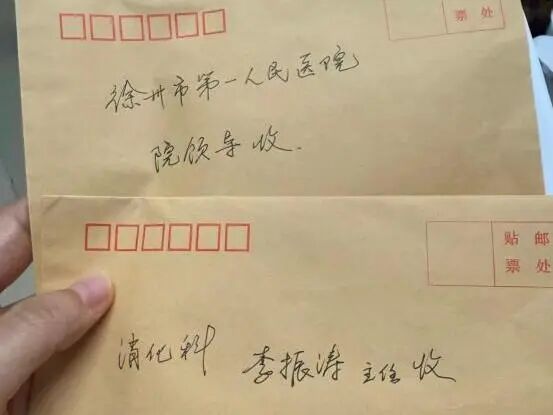 票处
徐州市第一人民医院
院领导收.
贴邮
票处
消化科 李振涛 主任 收